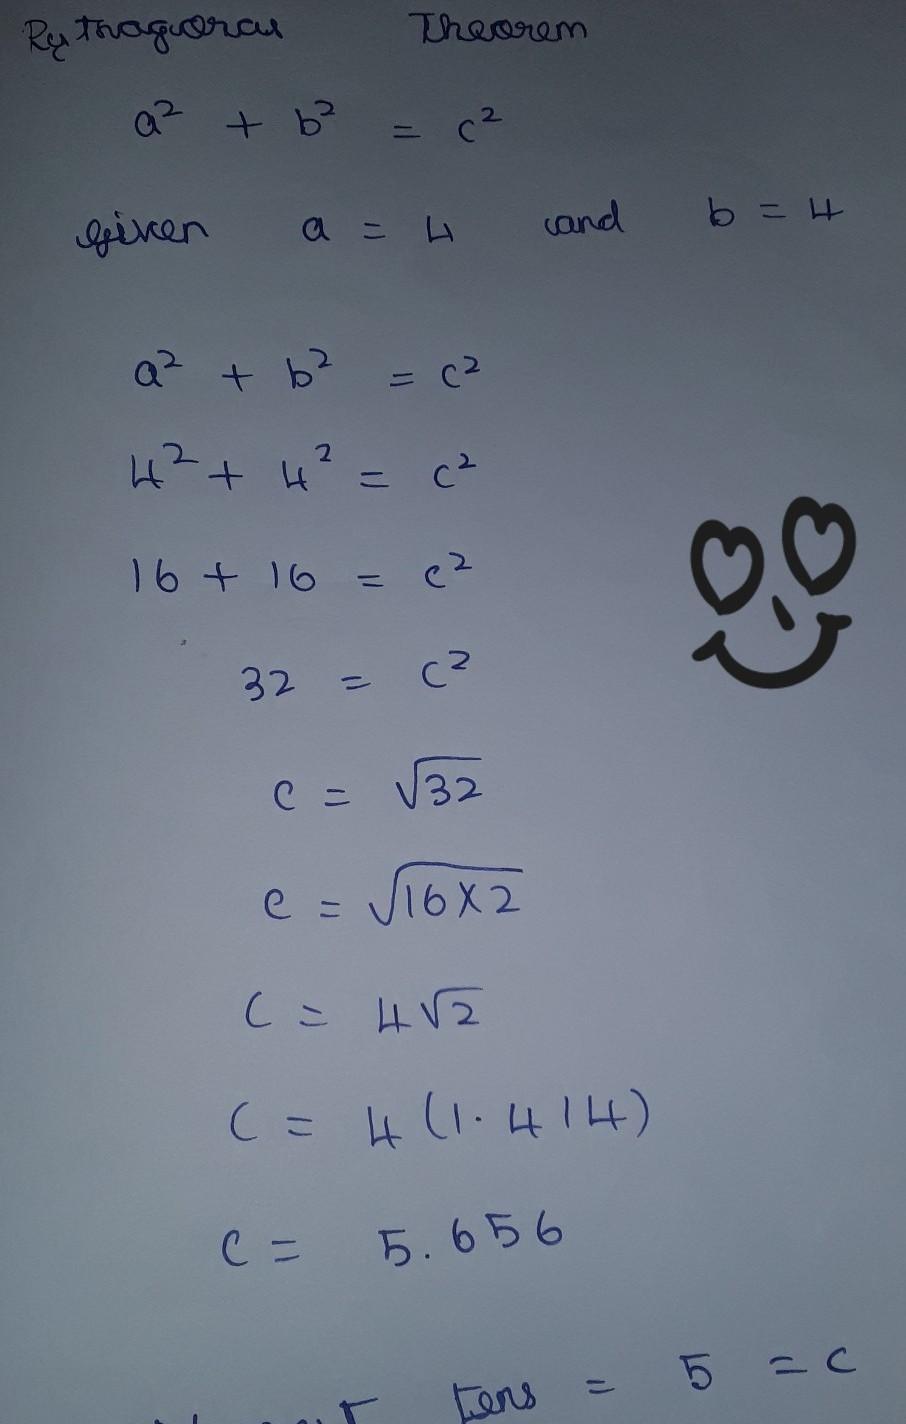 Pythagoras Theorem
a² + b² = c²
given a = 4 and b = 4
a² + b² = c²
4² + 4² = c²
16 + 16 = c²
32 = c²
c = √32
c = √16×2
c = 4√2
c = 4 (1.414)
c = 5.656
tens = 5 = c